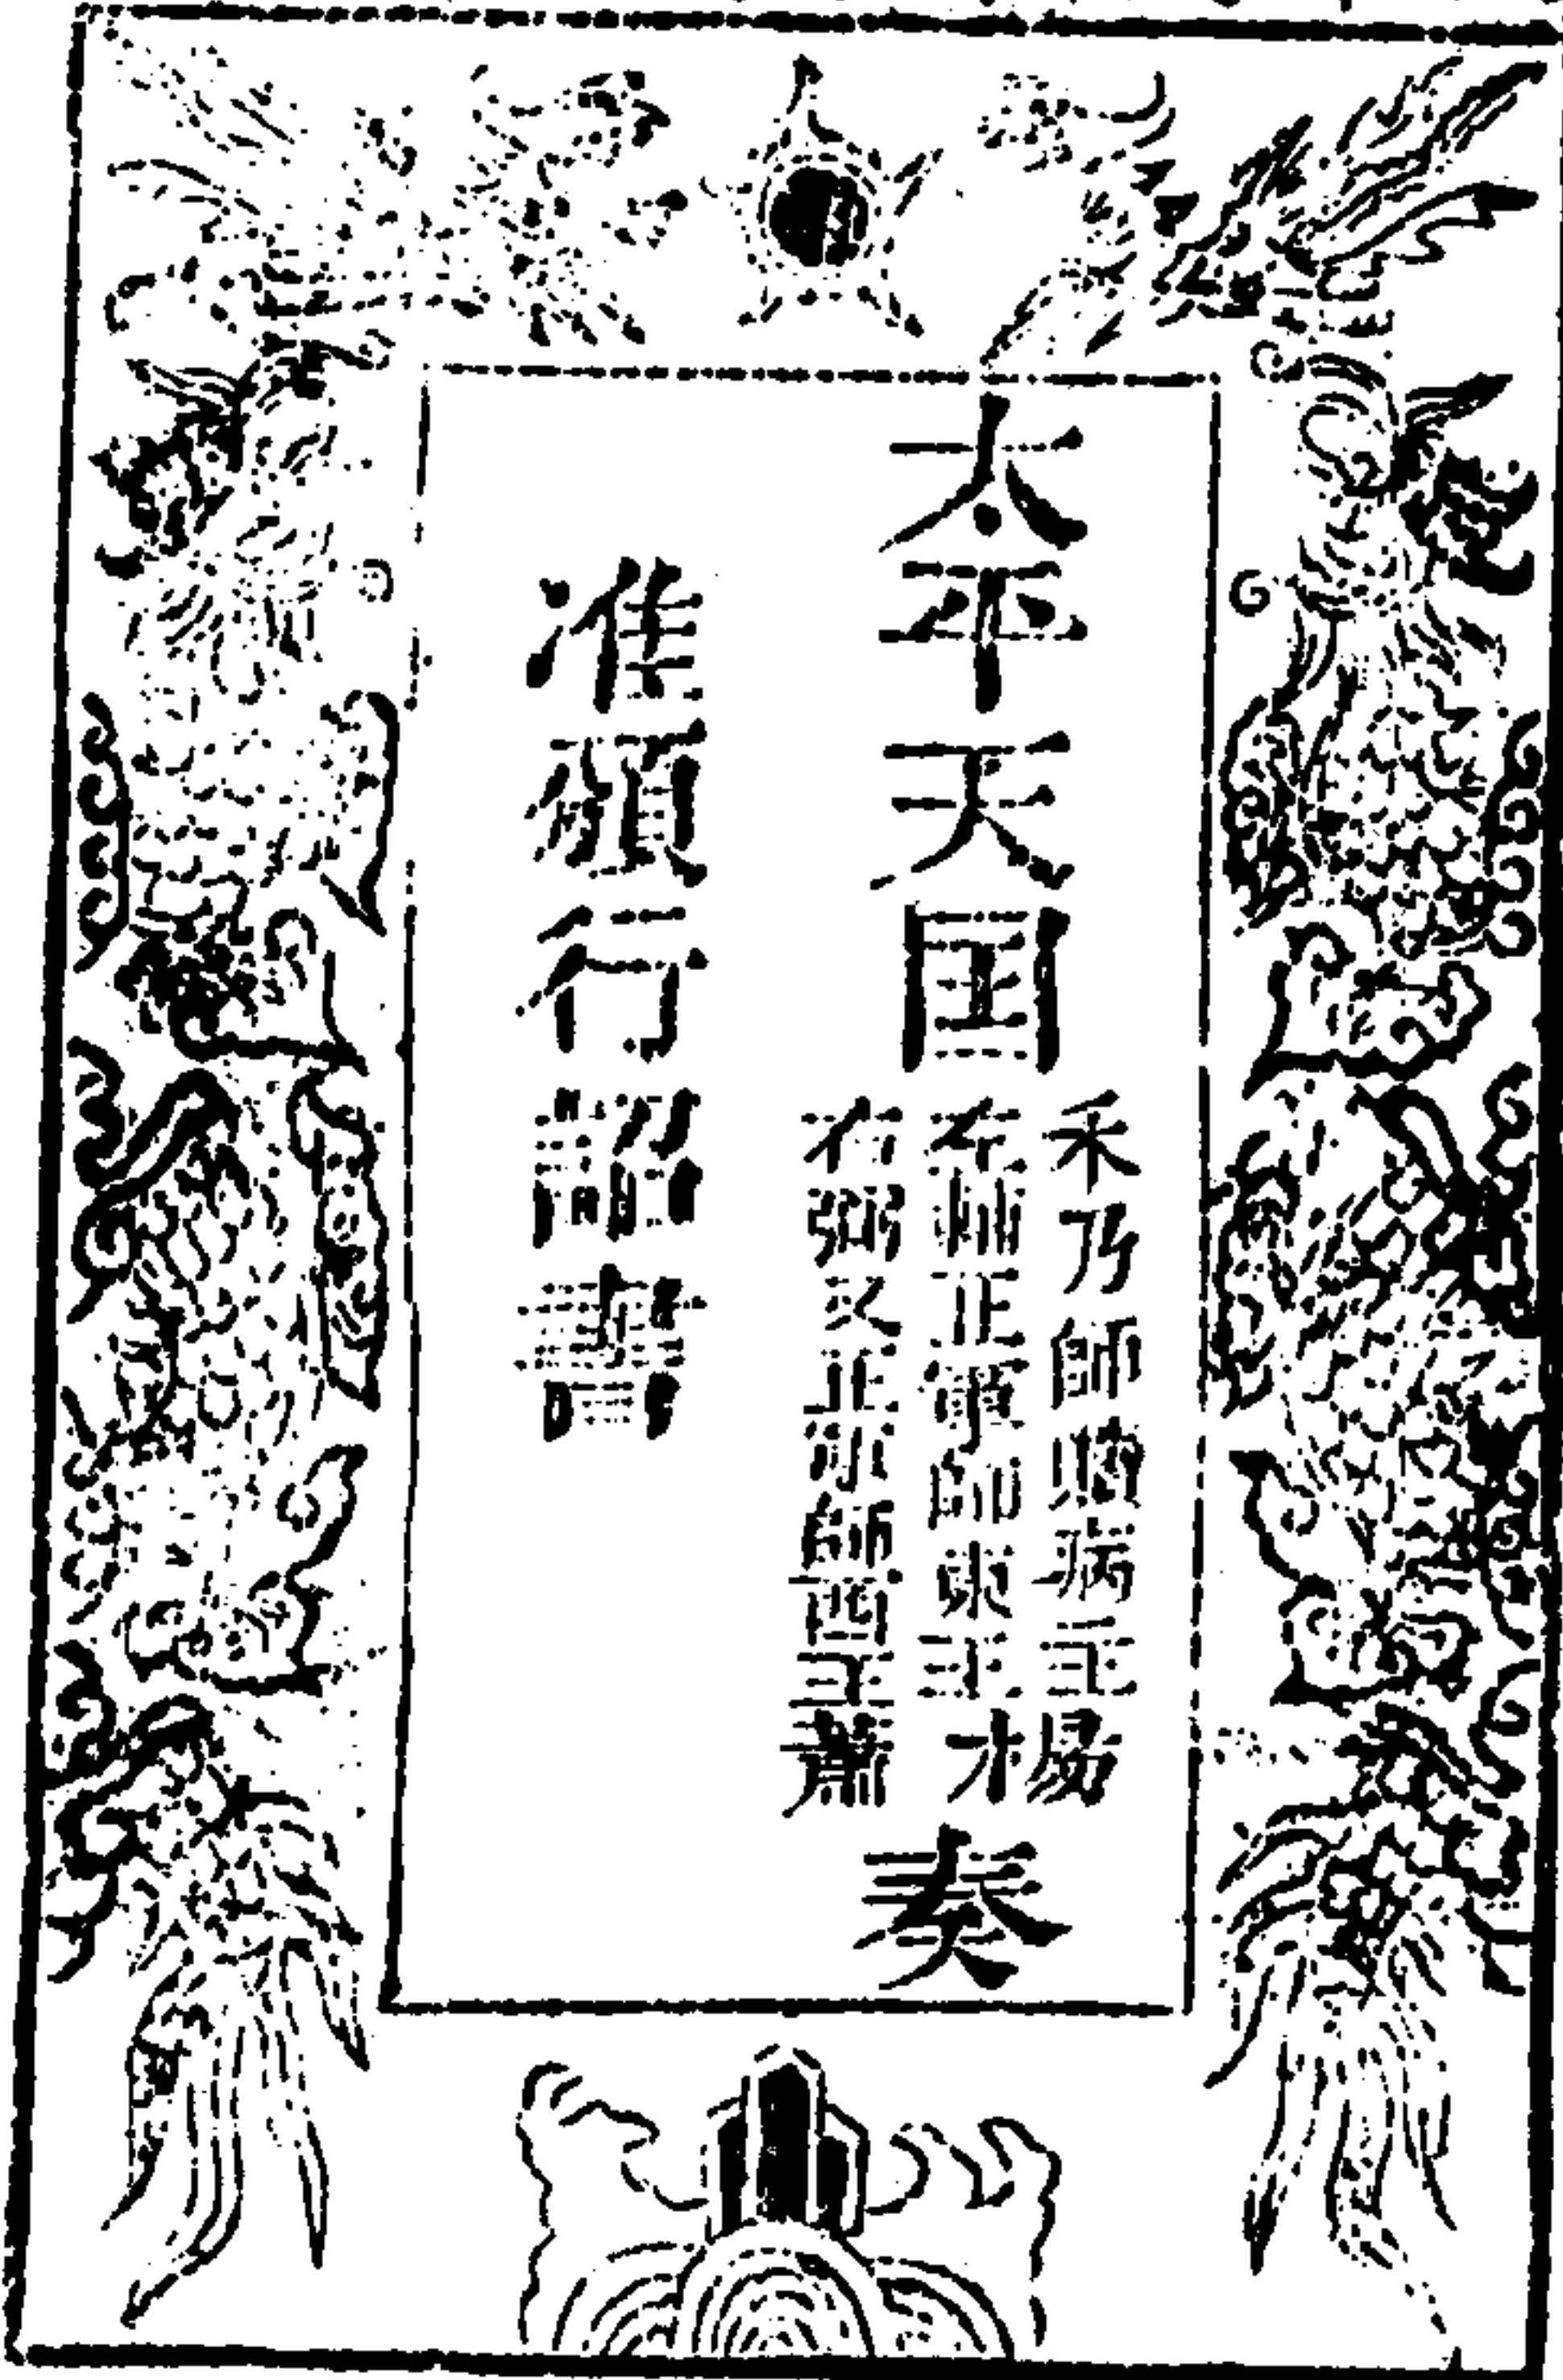 太平天囯
禾乃師贖病主
左輔正軍師東王
楊
右弼又正軍師西王蕭
奏
准頒行詔書